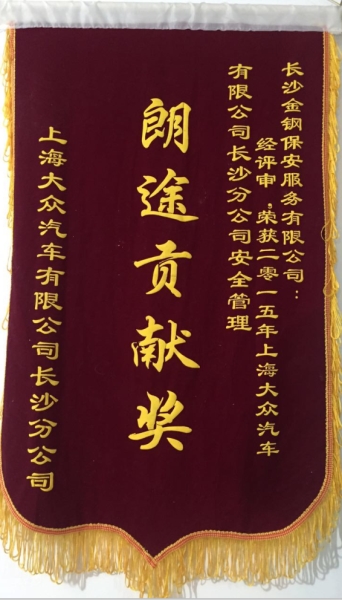 长沙金钢保安服务有限公司：
经评审，荣获二零一五年上海大众汽车
有限公司长沙分公司安全管理
朗途贡献奖
上海大众汽车有限公司长沙分公司